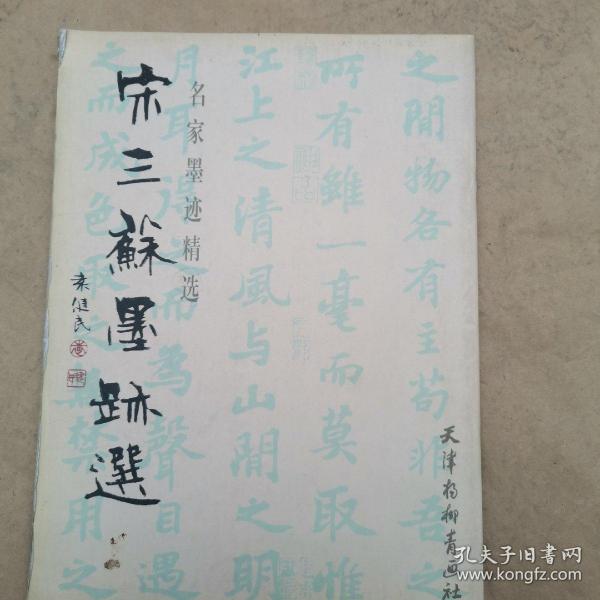 之間物各有主苟非吾之
所有雖一毫而莫取惟
江上之清風与山間之明
月耳得之而為聲目遇
之而成色取之無禁用之
名家墨迹精选
宋三蘇墨跡選
袁健民
天津杨柳青画社
孔夫子旧书网
www.kongfz.com